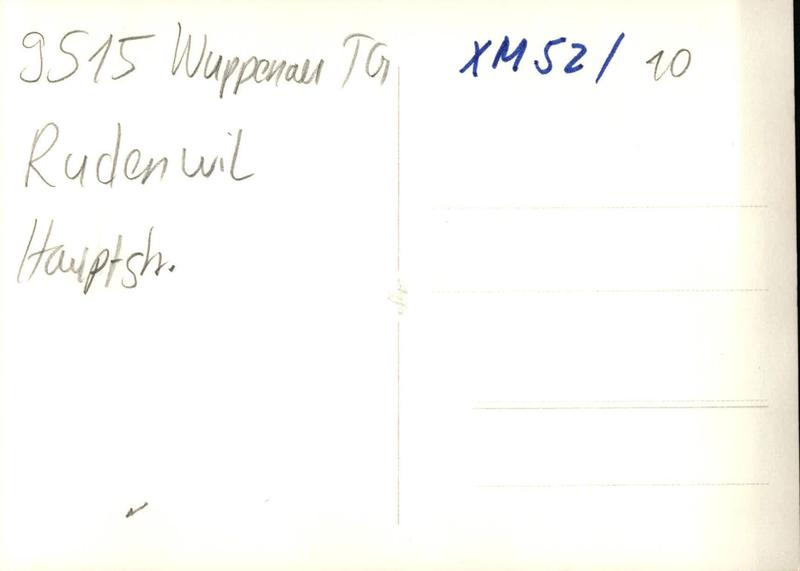 9515 Wuppenau TG
Rudenwil
Hauptstr.
XM52/ 10